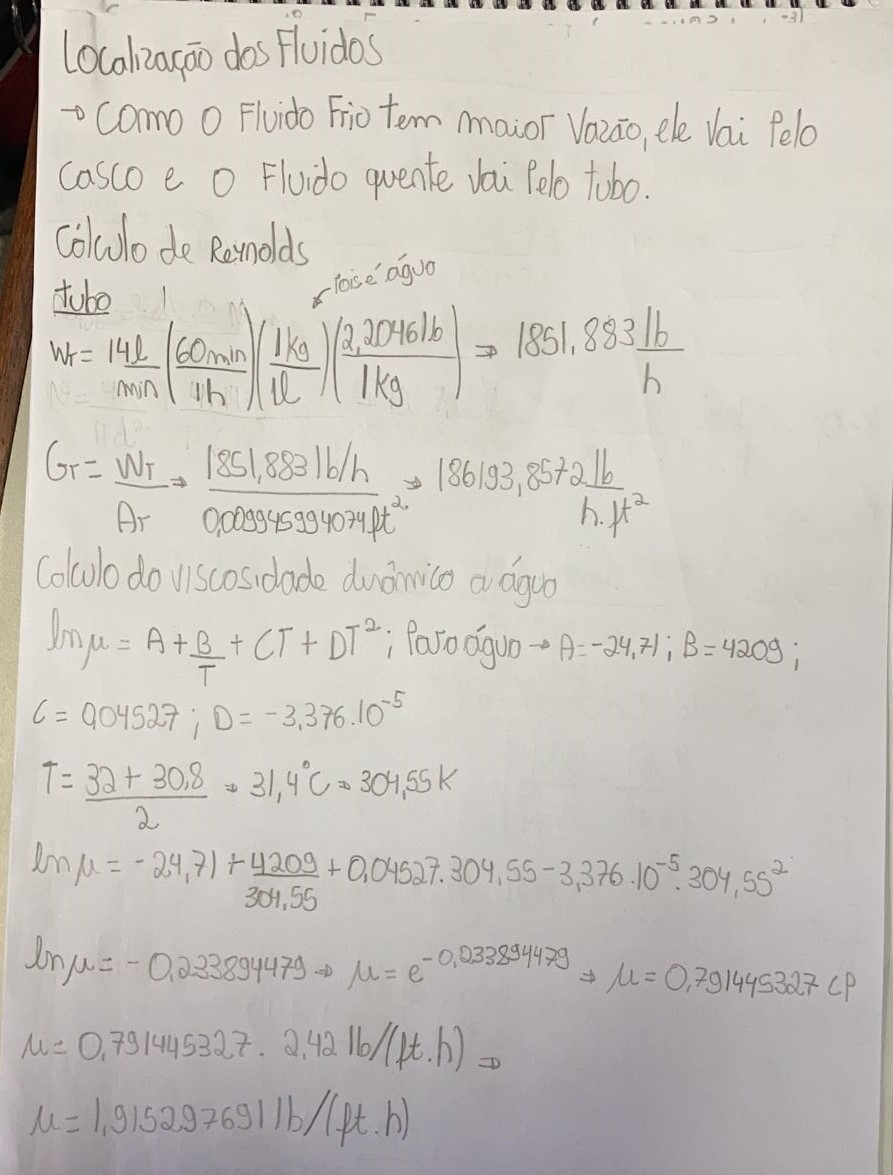 Localização dos Fluidos
→ Como o Fluido Frio tem maior Vazão, ele Vai Pelo
Casco e o Fluido quente Vai Pelo tubo.
Cálculo de Reynolds
tubo
Pois é água
Wт = 14ℓ/min (60min/1h)(1kg/1ℓ)(2,2046lb/1kg) ⇒ 1851,883 lb/h
Gт = Wт/Aт ⇒ 1851,883 lb/h / 0,009945994074 ft² ⇒ 186193,8572 lb/h.ft²
Calculo da viscosidade dinâmica a água
lnμ = A + B/T + CT + DT²; Para água → A=-24,71; B=4209;
C = 0,04527; D = -3,376.10⁻⁵
T = 32 + 30,8 / 2 ⇒ 31,4°C ⇒ 304,55K
lnμ = -24,71 + 4209/304,55 + 0,04527.304,55 - 3,376.10⁻⁵.304,55²
lnμ = -0,233894479 ⇒ μ = e^-0,233894479 ⇒ μ = 0,791445327 CP
μ = 0,791445327. 2,42 lb/(ft.h) ⇒
μ = 1,915297691 lb/(ft.h)